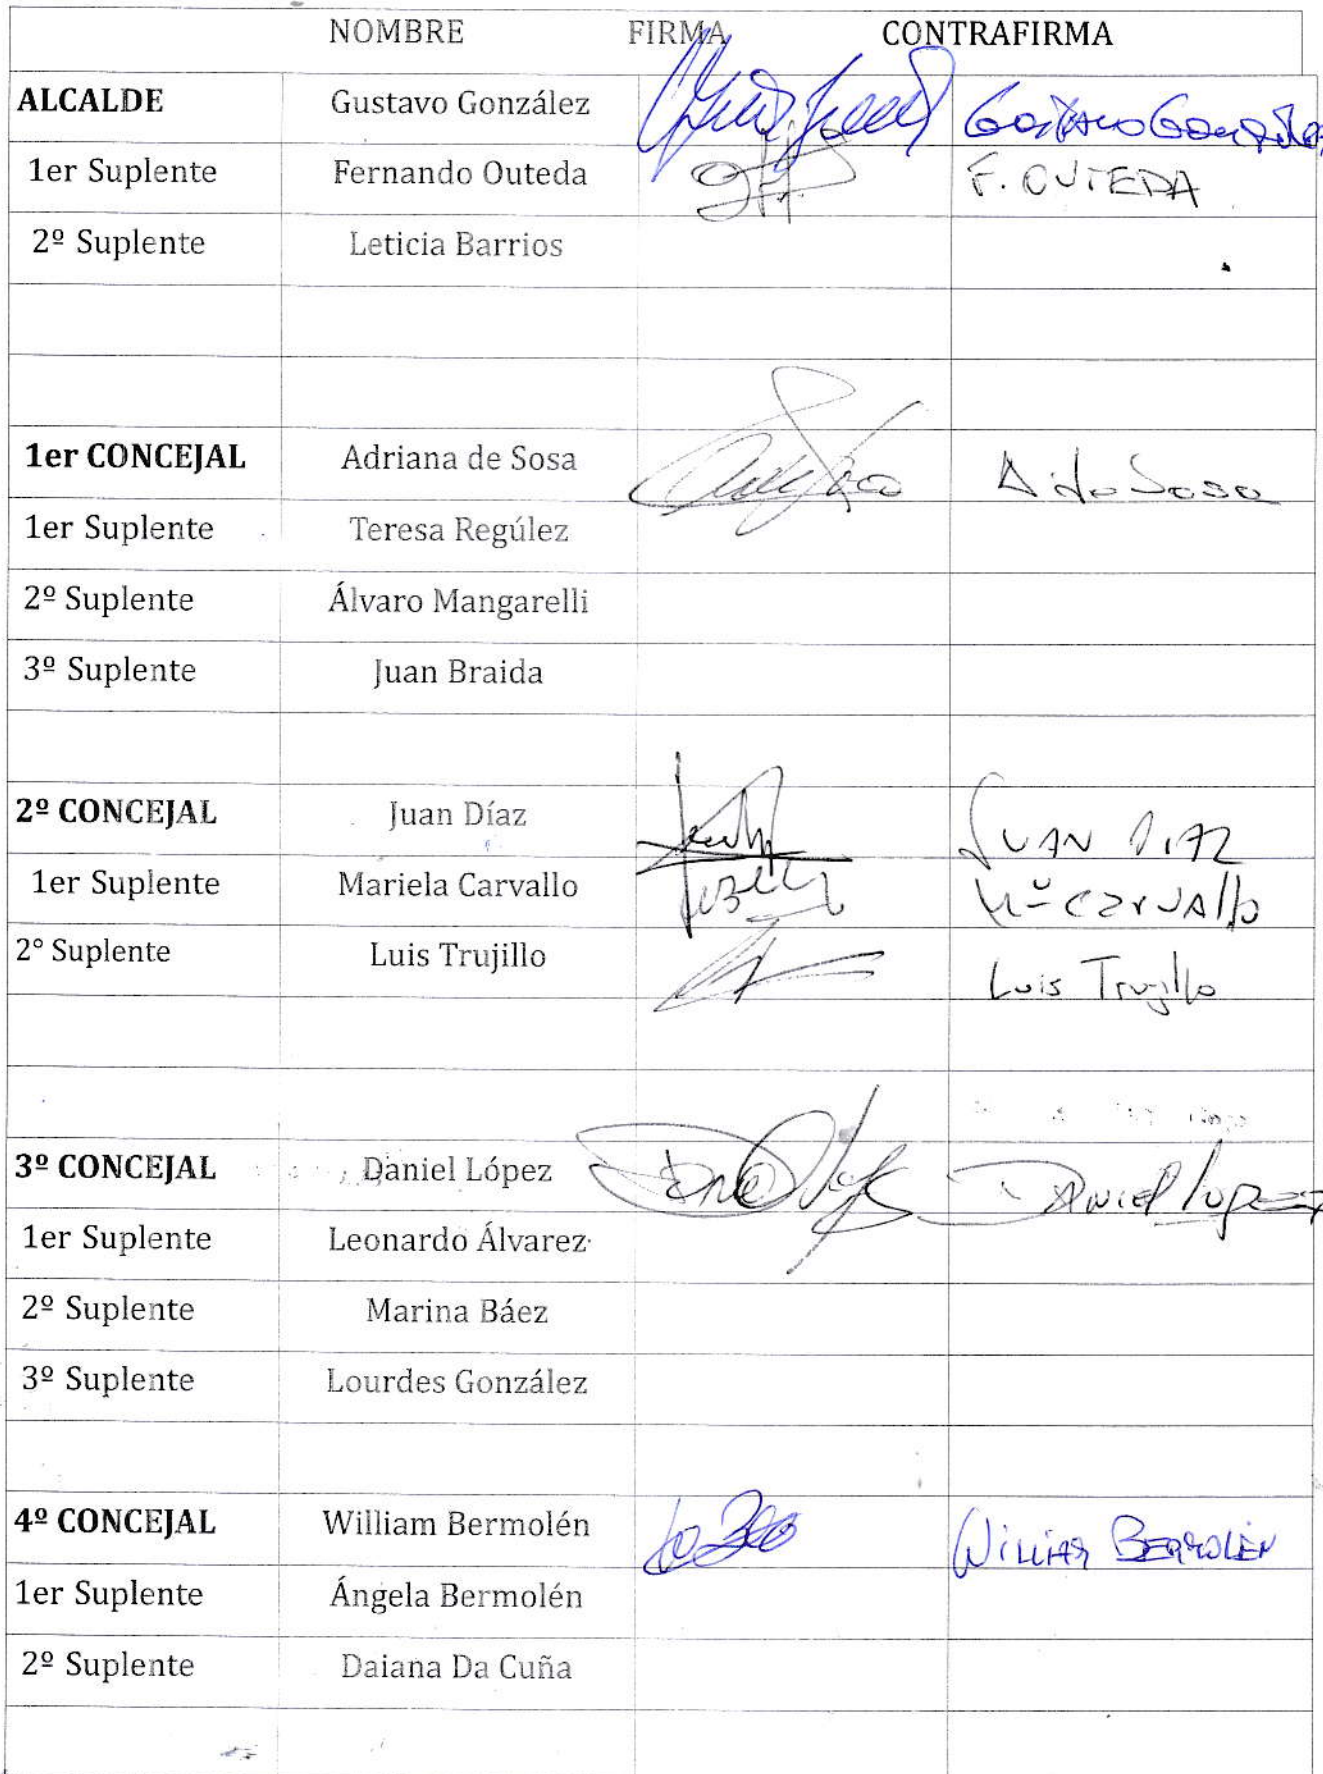 NOMBRE FIRMA CONTRAFIRMA
ALCALDE Gustavo González Gustavo González
1er Suplente Fernando Outeda F. OUTEDA
2º Suplente Leticia Barrios
1er CONCEJAL Adriana de Sosa Sosa
1er Suplente Teresa Regúlez
2º Suplente Álvaro Mangarelli
3º Suplente Juan Braida
2º CONCEJAL Juan Díaz JUAN DIAZ
1er Suplente Mariela Carvallo CARVALLO
2° Suplente Luis Trujillo Luis Trujillo
3º CONCEJAL Daniel López DANIEL LOPEZ
1er Suplente Leonardo Álvarez
2º Suplente Marina Báez
3º Suplente Lourdes González
4º CONCEJAL William Bermolén WILLIAM BERMOLÉN
1er Suplente Ángela Bermolén
2º Suplente Daiana Da Cuña